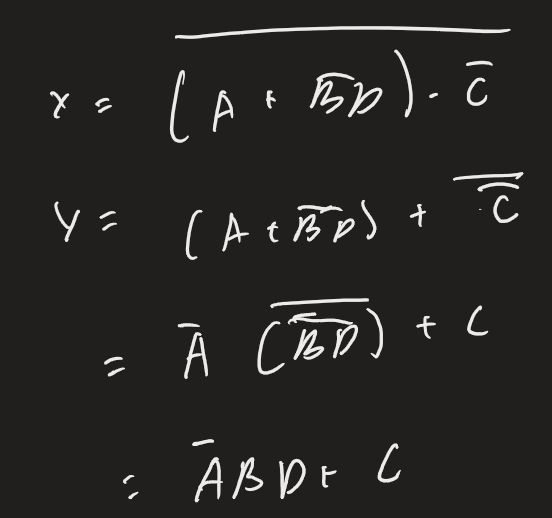 x = \overline{(A + \overline{BD}) \cdot \overline{C}}
Y = (A + \overline{BD}) + \overline{\overline{C}}
= \overline{A} (\overline{\overline{BD}}) + C
= \overline{A}BD + C